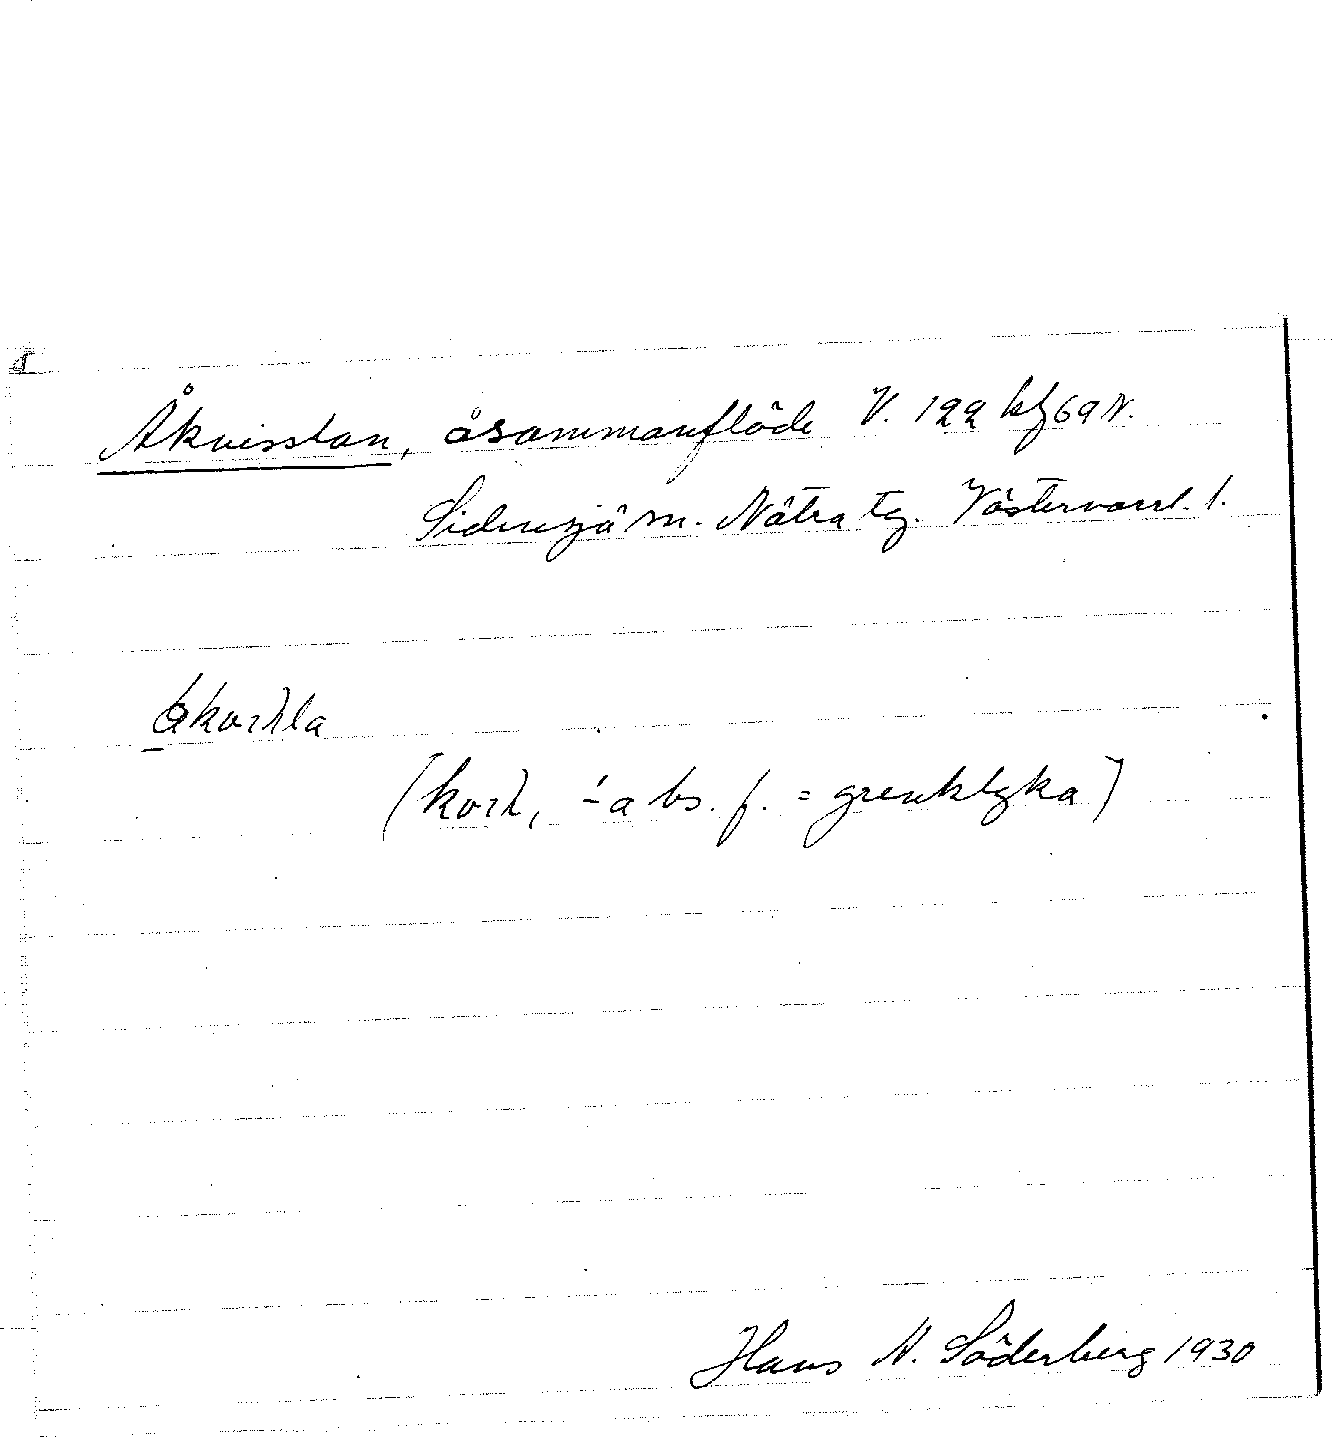 Åkvisslan, åsammanflöde V. 122 kf 69 N.
Sidensjö sn. Nätra tg. Västernorrl. l.
(
abs. f. = grenklyka)
Hans N. Söderberg 1930